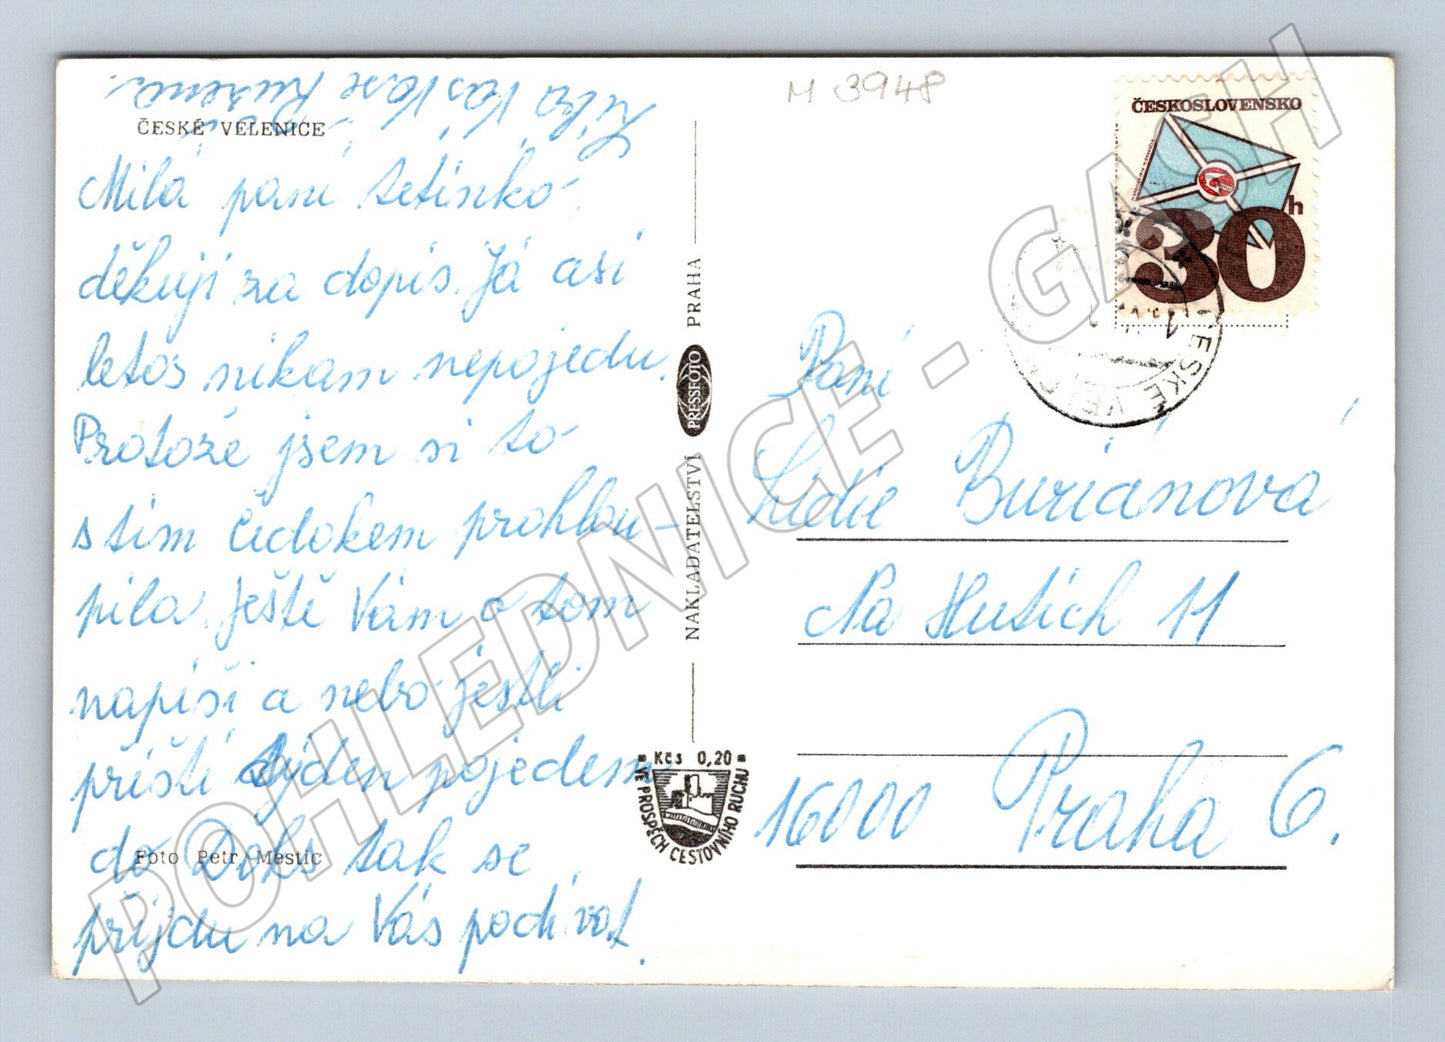 M 3948
ČESKOSLOVENSKO
30h
ČESKÉ VELENICE
Milá paní tetinko,
děkuji za dopis. Já asi
letos nikam nepojedu.
Protože jsem si to
s tím čedokem prohlou-
pila. Ještě Vám o tom
napíši a nebo jestli
příští týden pojedem
do Dvks tak se
přijdu na Vás podívat.
Líbá Vás Vaše Růžena.
Foto Petr Městic
NAKLADATELSTVÍ PRESSFOTO PRAHA
Kčs 0,20
VE PROSPĚCH CESTOVNÍHO RUCHU
ČESKÉ
Paní
Lidie Buriánová
Na Hutích 11
16000 Praha 6.
POHLEDNICE - GASH